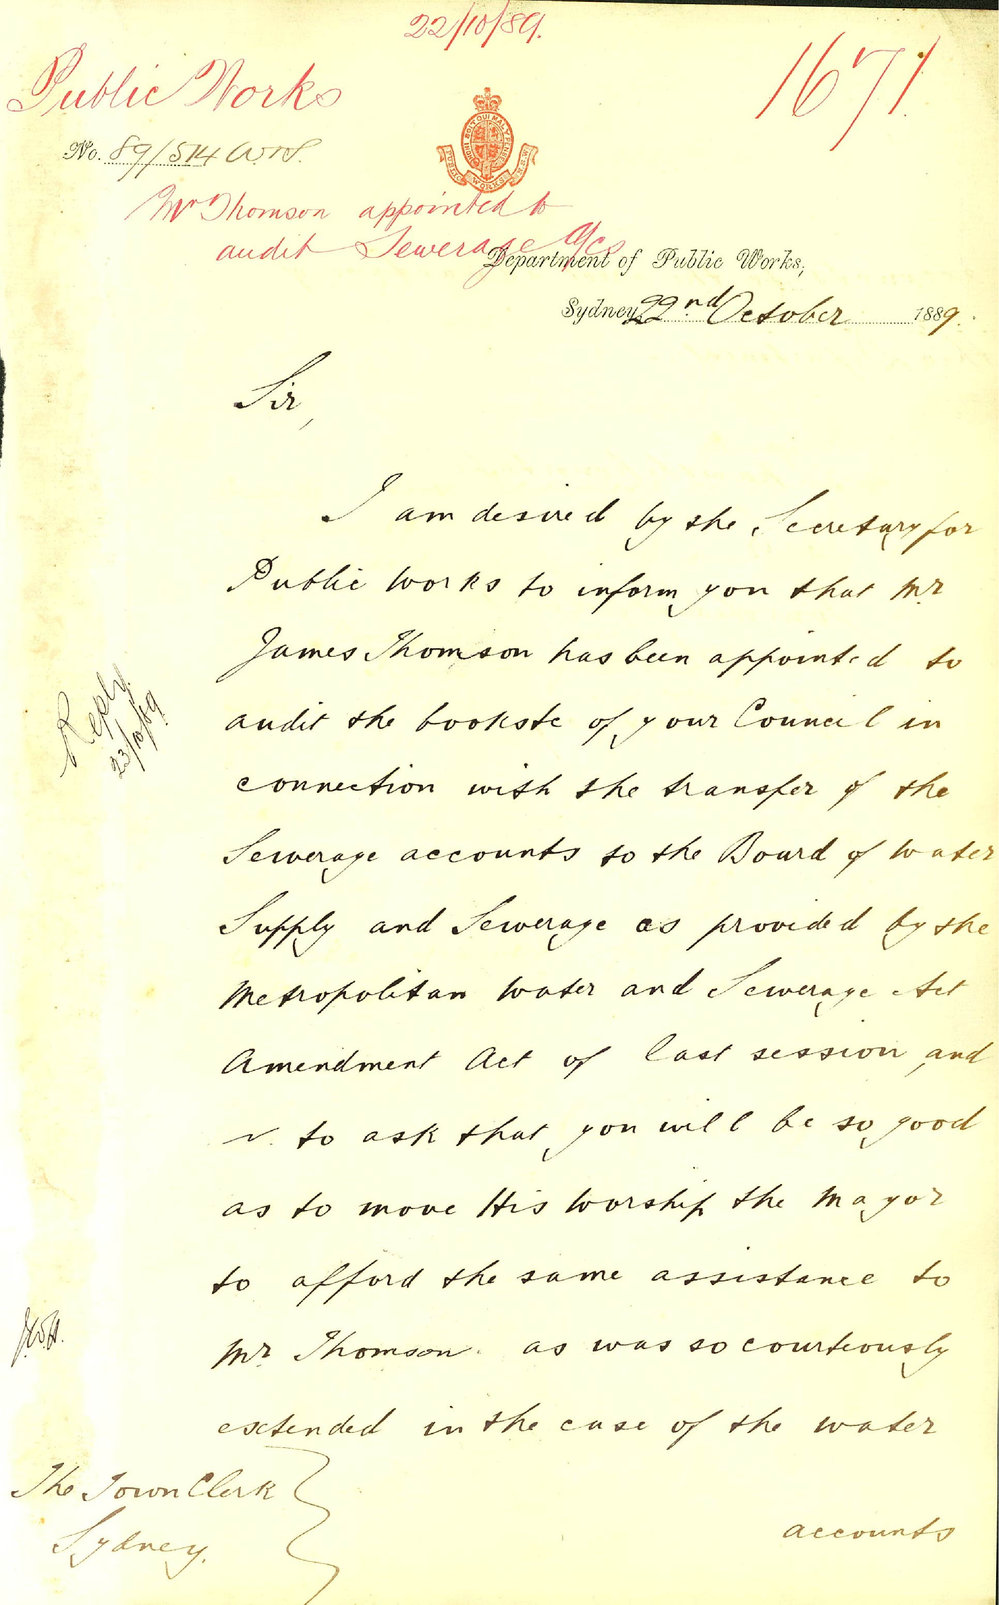 22/10/89.
Public Works
1671
No. 89/514 W.S.
Mr Thomson appointed to
audit Sewerage A/Cs
PUBLIC WORKS N.S.W.
Department of Public Works,
Sydney, 22nd October 1889.
Sir,
I am desired by the Secretary for
Public Works to inform you that Mr
James Thomson has been appointed to
audit the books &c of your Council in
connection with the transfer of the
Sewerage accounts to the Board of Water
Supply and Sewerage as provided by the
Metropolitan Water and Sewerage Act
Amendment Act of last session and
to ask that you will be so good
as to move His Worship the Mayor
to afford the same assistance to
Mr Thomson as was so courteously
extended in the case of the water
accounts
The Town Clerk
Sydney.
Reply
23/10/89